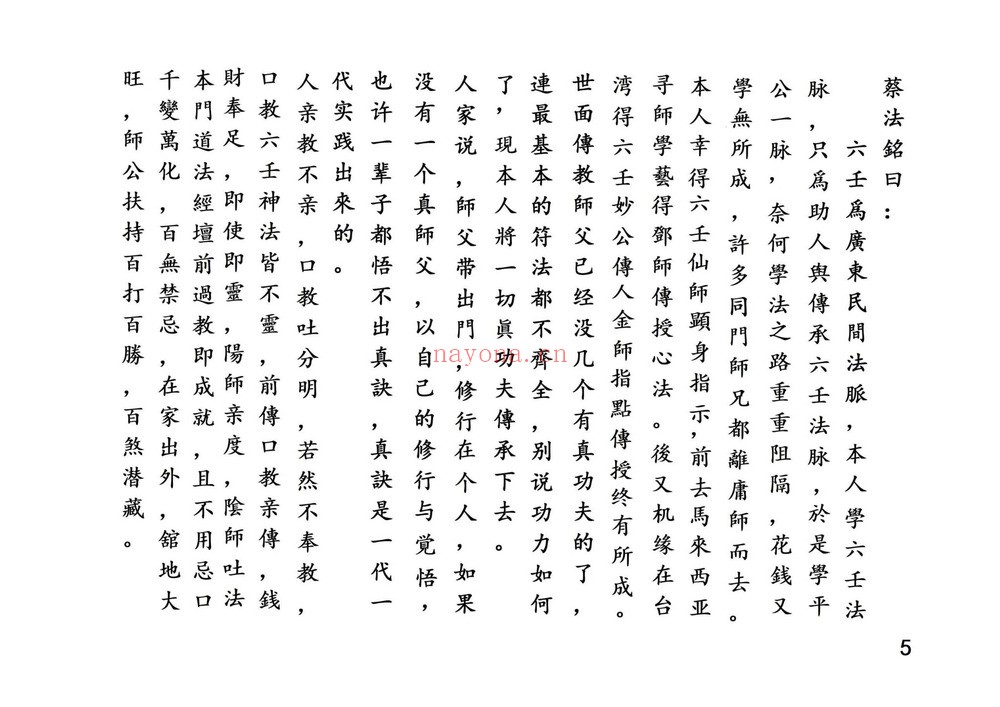 蔡法銘曰：
六壬爲廣東民間法脈，本人學六壬法
脉，只爲助人與傳承六壬法脉，於是學平
公一脉，奈何學法之路重重阻隔，花銭又
學無所成，許多同門師兄都離庸師而去。
本人幸得六壬仙師顕身指示，前去馬來西亞
寻師學藝得鄧師傳授心法。後又机缘在台
湾得六壬妙公傳人金師指點傳授终有所成。
世面傳教師父已经没几个有真功夫的了，
連最基本的符法都不齊全，别说功力如何
了，現本人將一切眞功夫傳承下去。
人家说，師父带出門，修行在个人，如果
没有一个真師父，以自己的修行与覚悟，
也许一輩子都悟不出真訣，真訣是一代一
代实践出來的。
人亲教不亲，口教吐分明，若然不奉教，
口教六壬神法皆不靈，前傳口教亲傳，銭
財奉足，即使即靈，陽師亲度，陰師吐法
本門道法經壇前過教即成就，且不用忌口
千變萬化，百無禁忌，在家出外，舘地大
旺，師公扶持百打百勝，百煞潜藏。
5
nayona.cn